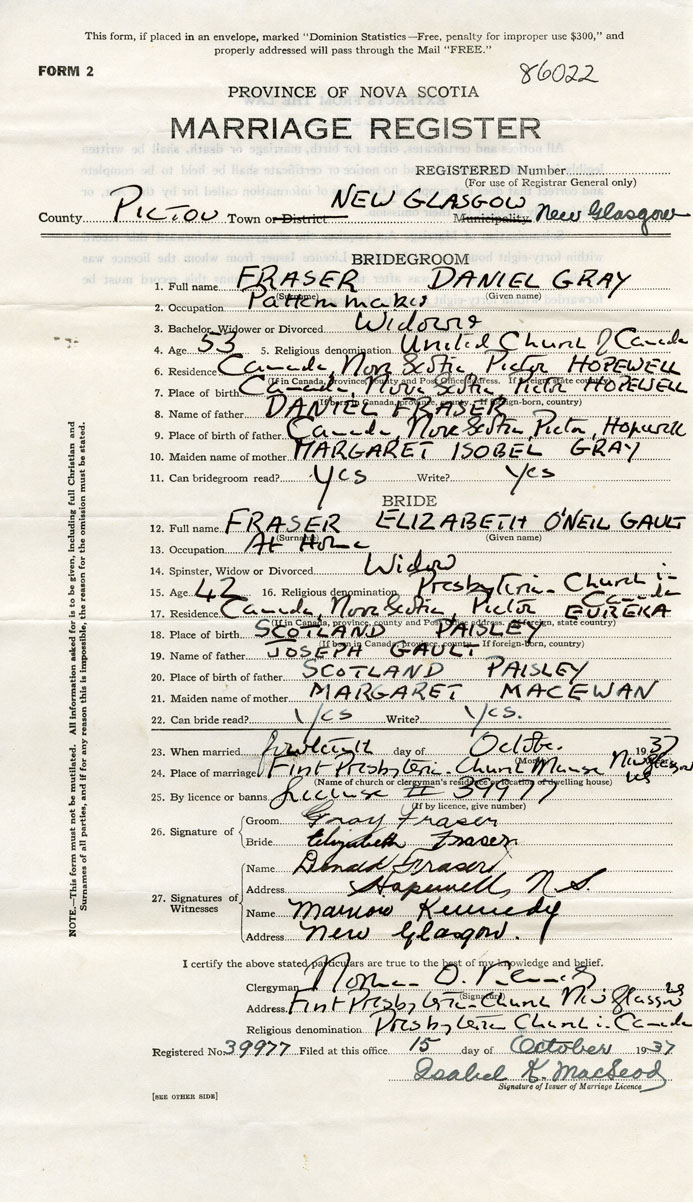 This form, if placed in an envelope, marked "Dominion Statistics—Free, penalty for improper use $300," and
properly addressed will pass through the Mail "FREE."
FORM 2
86022
PROVINCE OF NOVA SCOTIA
MARRIAGE REGISTER
REGISTERED Number
(For use of Registrar General only)
County PICTOU Town or District NEW GLASGOW Municipality New Glasgow
BRIDEGROOM
1. Full name FRASER DANIEL GRAY
(Surname) (Given name)
2. Occupation Patternmaker
3. Bachelor, Widower or Divorced Widower
4. Age 53 5. Religious denomination United Church of Canada
6. Residence Canada, Nova Scotia, Pictou HOPEWELL
(If in Canada, province, county and Post Office address. If foreign, state country)
7. Place of birth Canada, Nova Scotia, Pictou HOPEWELL
(If born in Canada, province, county. If foreign-born, country)
8. Name of father DANIEL FRASER
9. Place of birth of father Canada, Nova Scotia, Pictou, Hopewell
10. Maiden name of mother MARGARET ISOBEL GRAY
11. Can bridegroom read? Yes Write? Yes
BRIDE
12. Full name FRASER ELIZABETH O'NEIL GAULT
(Surname) (Given name)
13. Occupation At Home
14. Spinster, Widow or Divorced Widow
15. Age 42 16. Religious denomination Presbyterian Church in Canada
17. Residence Canada, Nova Scotia, Pictou EUREKA
(If in Canada, province, county and Post Office address. If foreign, state country)
18. Place of birth SCOTLAND PAISLEY
(If born in Canada, province, county. If foreign-born, country)
19. Name of father JOSEPH GAULT
20. Place of birth of father SCOTLAND PAISLEY
21. Maiden name of mother MARGARET MACEWAN
22. Can bride read? Yes Write? Yes.
23. When married day of October 1937
(Month)
24. Place of marriage First Presbyterian Church Manse New Glasgow NS
(Name of church or clergyman's residence or location of dwelling house)
25. By licence or banns License # 39977
(If by licence, give number)
26. Signature of
Groom Gray Fraser
Bride Elizabeth Fraser
27. Signatures of Witnesses
Name Donald Fraser
Address Hopewell, N.S.
Name Marion Kennedy
Address New Glasgow.
I certify the above stated particulars are true to the best of my knowledge and belief.
Clergyman Norman D. Kennedy
(Signature)
Address First Presbyterian Church New Glasgow NS
Religious denomination Presbyterian Church in Canada
Registered No. 39977 Filed at this office 15 day of October 1937
Isabel K. MacLeod
Signature of Issuer of Marriage Licence
[SEE OTHER SIDE]
NOTE.—This form must not be mutilated. All information asked for is to be given, including full Christian and
Surnames of all parties, and if for any reason this is impossible, the reason for the omission must be stated.